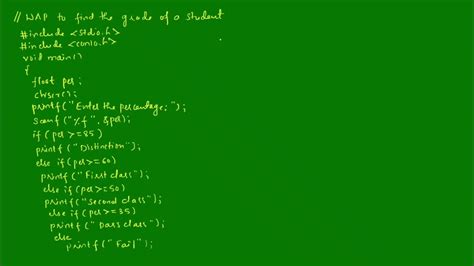 // WAP to find the grade of a student
#include <stdio.h>
#include <conio.h>
void main()
{
float per;
clrscr();
printf("Enter the percentage: ");
scanf("%f", &per);
if(per>=85)
printf("Distinction");
else if(per>=60)
printf("First class");
else if(per>=50)
printf("Second class");
else if(per>=35)
printf("Pass class");
else
printf("Fail");